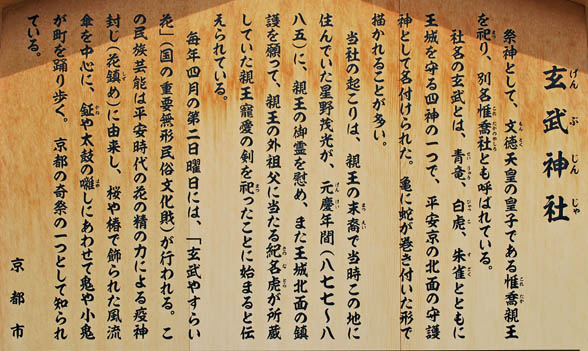 玄武神社
祭神として、文徳天皇の皇子である惟喬親王
を祀り、別名惟喬社とも呼ばれている。
社名の玄武とは、青竜、白虎、朱雀とともに
王城を守る四神の一つで、平安京の北面の守護
神として名付けられた。亀に蛇が巻き付いた形で
描かれることが多い。
当社の起こりは、親王の末裔で当時この地に
住んでいた星野茂光が、元慶年間(八七七〜八
八五)に、親王の御霊を慰め、また王城北面の鎮
護を願って、親王の外祖父に当たる紀名虎が所蔵
していた親王寵愛の剣を祀ったことに始まると伝
えられている。
毎年四月の第二日曜日には、「玄武やすらい
花」(国の重要無形民俗文化財)が行われる。こ
の民族芸能は平安時代の花の精の力による疫神
封じ(花鎮め)に由来し、桜や椿で飾られた風流
傘を中心に、鉦や太鼓の囃しにあわせて鬼や小鬼
が町を踊り歩く。京都の奇祭の一つとして知られ
ている。
京都市